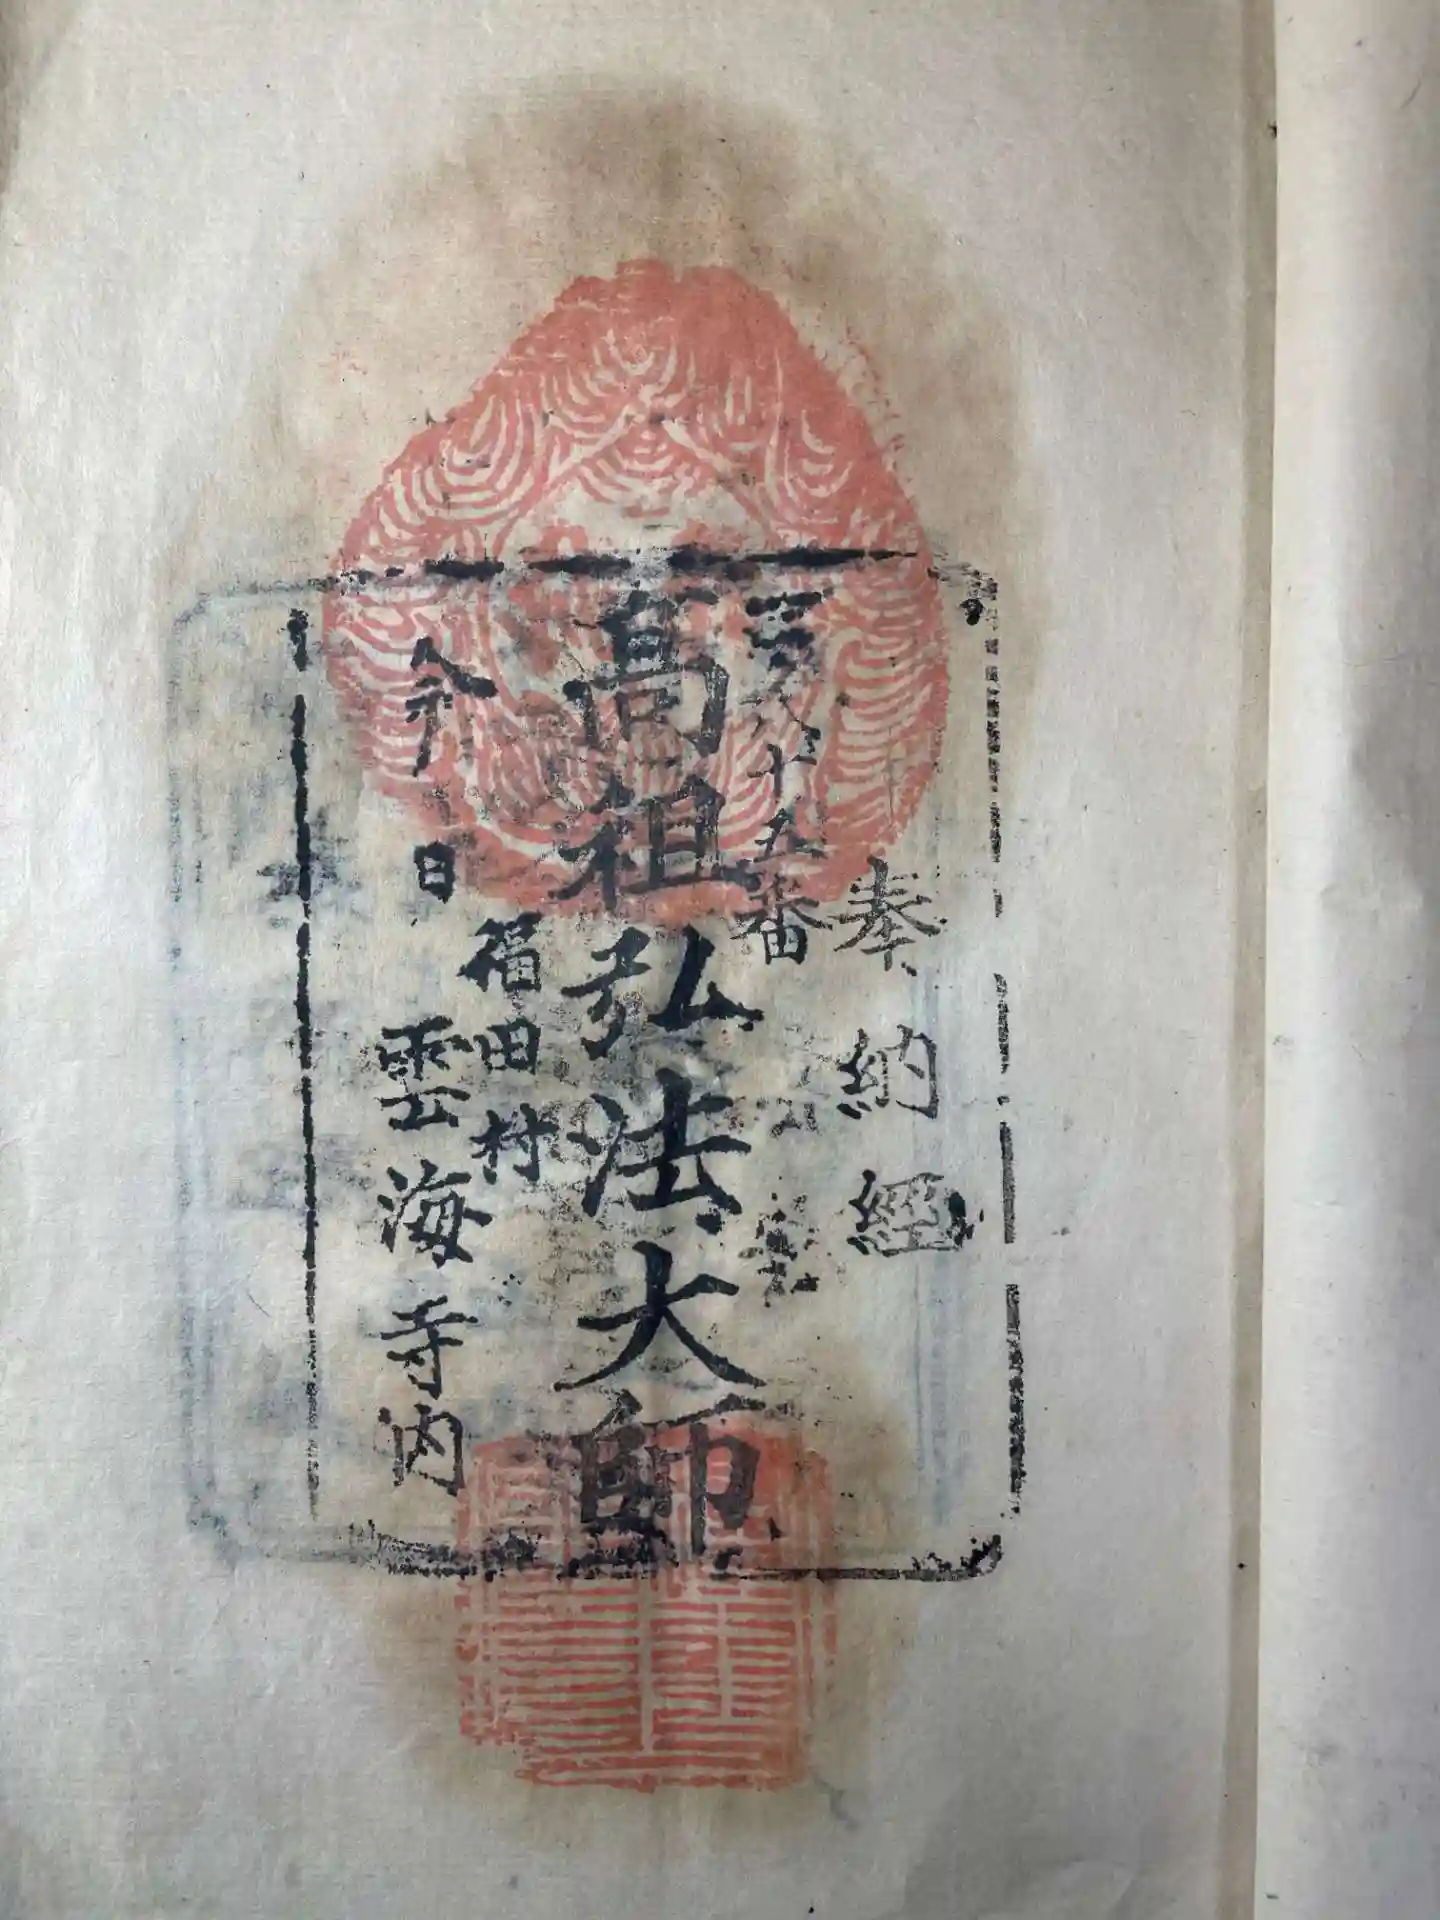 奉納經
八十五番
高祖弘法大師
福田村
今日
雲海寺内